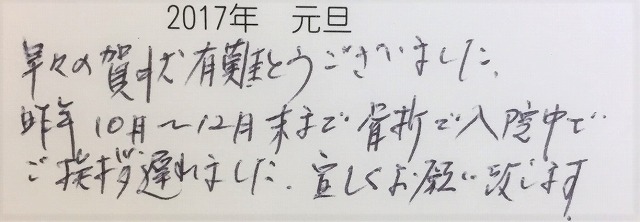 2017年 元旦
早々の賀状有難とうございました。
昨年10月〜12月末まで骨折で入院中で
ご挨拶遅れました。宜しくお願い致します